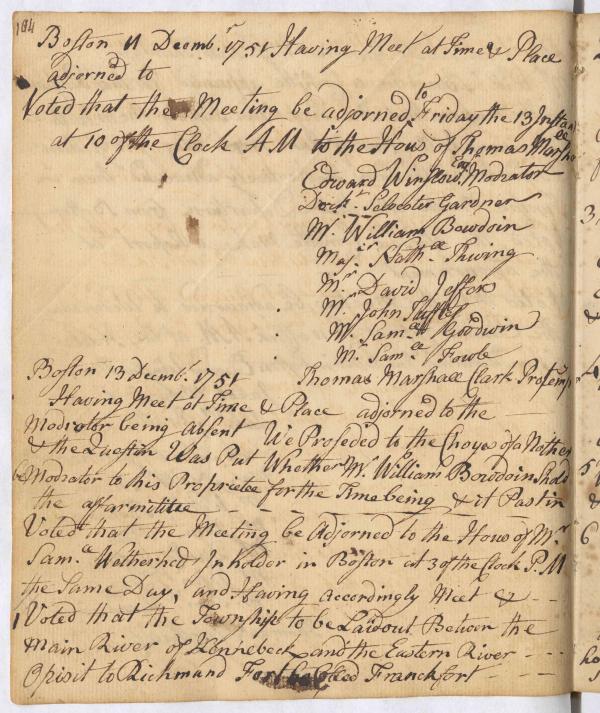 184
Boston 11 Decembr. 1751 Having Meet at Time & Place
adjorned to
Voted that the Meeting be adjorned to Friday the 13 Instant
at 10 of the Clock AM to the Hous of Thomas Marshall
Edward Winslow Esqr. Modrator
Doctr. Selvester Gardner
Mr. William Bowdoin
Majr. Nathll. Thwing
Mr. David Jeffers
Mr. John Tufts
Mr. Samll. Goodwin
Mr. Samll. Fowle
Boston 13 Decembr. 1751 Thomas Marshall Clark Protemp
Having Meet at Time & Place adjorned to the
Modrator being Absent We Proseded to the Choyes of a Nother
& the Queston Was Put Whether Mr. William Bowdoin Shold
be Modrator to this Propriatee for the Time being & it Past in
the affarmitive
Voted that the Meeting be Adjorned to the Hous of Mr.
Samll. Wethered Inholder in Boston at 3 of the Clock P.M
the Same Day, and Having accordingly Meet &
1 Voted that the Township to be Laidout Betwen the
Main River of Kennebeck and the Eastern River
Opisit to Richmand Fort be Coled Franckfort